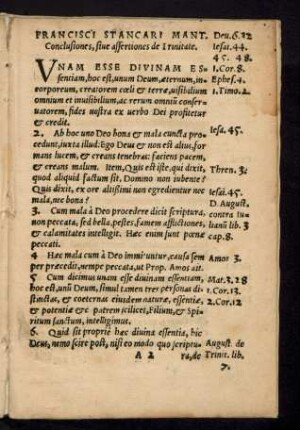 FRANCISCI STANCARI MANT. Deu. 6. 32
Conclusiones, siue assertiones de Trinitate. Iesai. 44.
45. 48.
VNAM ESSE DIVINAM ES- 1. Cor. 8.
sentiam, hoc est, vnum Deum, æternum, in- Ephes. 4.
corporeum, creatorem cœli & terræ, visibilium 1. Timo. 2.
omnium et inuisibilium, ac rerum omniũ conser-
uatorem, fides nostra ex verbo Dei profitetur
& credit.
2. Ab hoc uno Deo bona & mala cuncta pro- Iesa. 45.
cedunt, iuxta illud: Ego Deus & non est alius, for-
mans lucem, & creans tenebras: faciens pacem,
& creans malum. Item, Quis est iste, qui dixit, Thren. 3.
quod aliquid factum sit, Domino non iubente?
Quis dixit, ex ore altissimi non egredientur nec Iesai. 45.
mala, nec bona? D. August.
3. Cum mala à Deo procedere dicit scriptura, contra Iu-
non peccata, sed bella, pestes, famem afflictiones, lianũ lib. 3
& calamitates intellegit. Hæc enim sunt pœnæ cap. 8.
peccati.
4 Hæc mala cum à Deo immittuntur, causa sem Amos 3.
per præcedit, nempe peccata, ut Prop. Amos ait.
5 Cum dicimus unam esse diuinam essentiam, Mar. 3. 28
hoc est, unũ Deum, simul tamen tres personas di 1. Cor. 13.
stinctas, & coeternas eiusdem naturæ, essentiæ, 2. Cor. 12
& potentiæ etc patrem scilicet, Filium, & Spi-
ritum sanctum, intelligimus.
6. Quid sit propriè hæc diuina essentia, hic
Deus, nemo scire potest, nisi eo modo quo scriptu- August. de
A 2 ra, de Trinit. lib.
7.